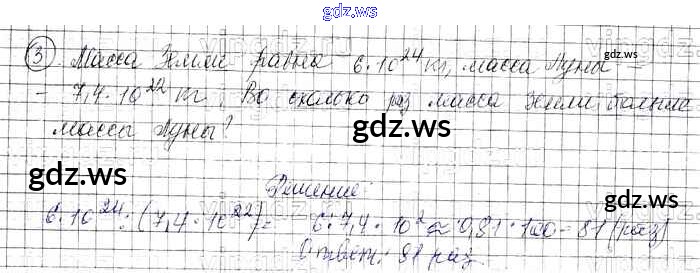 gdz.ws
③ Масса Земли равна 6·10²⁴ кг, масса Луны –
gdz.ws
– 7,4·10²² кг. Во сколько раз масса Земли больше
массы Луны?
gdz.ws
gdz.ws
Решение:
6·10²⁴:(7,4·10²²)= 6:7,4·10²≈0,81·100=81(раз)
Ответ: 81 раз.
gdz.ws
gdz.ws